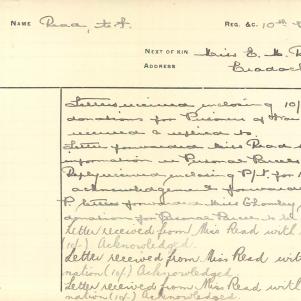 NAME Read, REG. &C. 10th
NEXT OF KIN Miss E. M. R
ADDRESS Cradoc
Letters received enclosing 10/
donations for Prisoners of War
received & replied to.
Letter forwarded Miss Read
information re Personal Parcel
Reply received, enclosing P/N. for
acknowledgement forwarded
letter forwarded Miss
donation for Personal Parcel
Letter received from Miss Read with
(10/) Acknowledged.
Letter received from Miss Read with
nation (10/) Acknowledged
Letter received from Miss Read with
nation (10/) Acknowledged